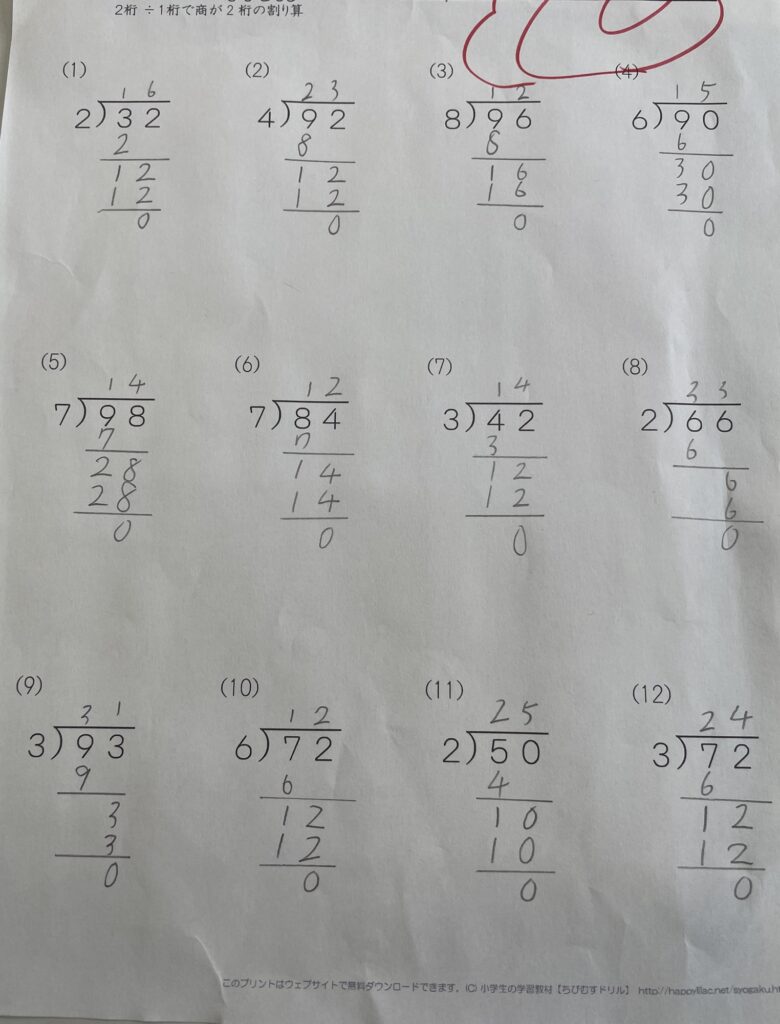 2桁 ÷1桁で商が2桁の割り算
(1) (2) (3) (4)
16 23 12 15
2)32 4)92 8)96 6)90
2 8 8 6
12 12 16 30
12 12 16 30
0 0 0 0
(5) (6) (7) (8)
14 12 14 33
7)98 7)84 3)42 2)66
7 7 3 6
28 14 12 6
28 14 12 6
0 0 0 0
(9) (10) (11) (12)
31 12 25 24
3)93 6)72 2)50 3)72
9 6 4 6
3 12 10 12
3 12 10 12
0 0 0 0
このプリントはウェブサイトで無料ダウンロードできます。(C) 小学生の学習教材【ちびむすドリル】 http://happylilac.net/syogaku.ht